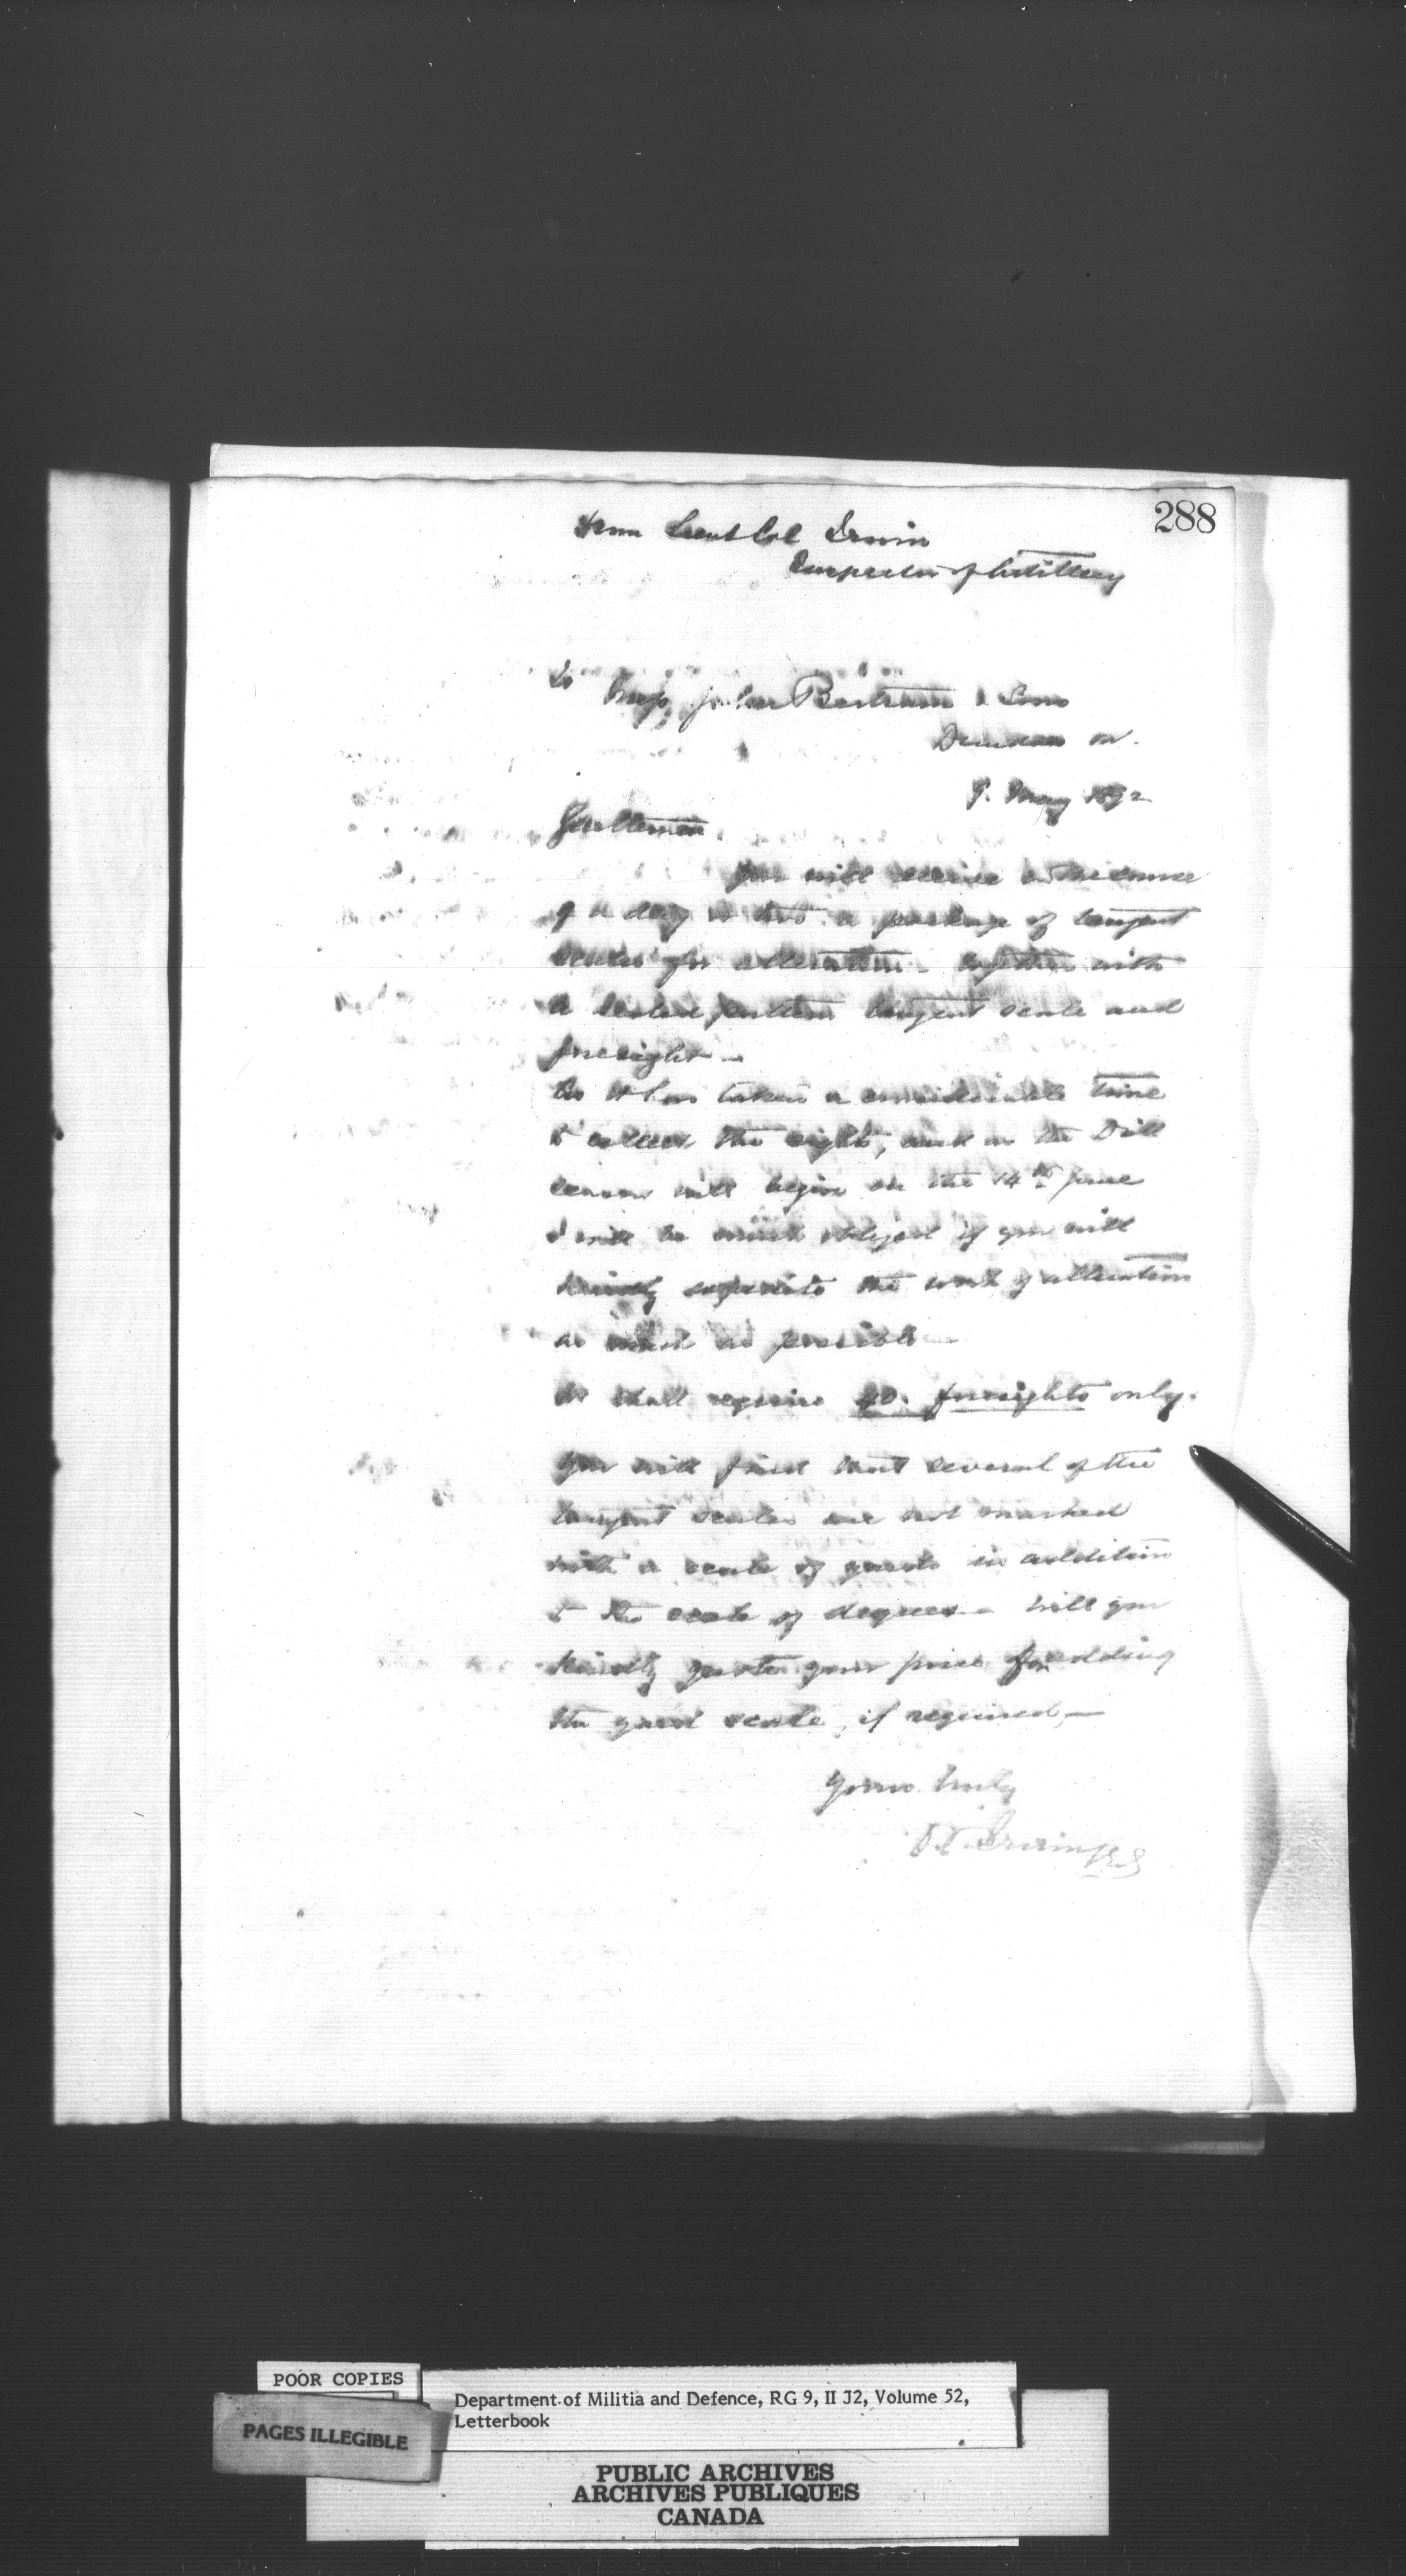 288
From Lieut Col Irwin
Inspector of Artillery
To Messrs John Bertram & Sons
Dundas On.
9. May 1892
Gentlemen,
You will receive in the course
of a day or two a package of tangent
scales for alteration - together with
a sealed pattern tangent scale and
foresight -
As it has taken a considerable time
to collect the sights, and as the Drill
season will begin on the 14th June
I will be much obliged if you will
kindly expedite the work of alteration
as much as possible -
We shall require 40. foresights only.
You will find that several of the
tangent scales are not marked
with a scale of yards in addition
to the scale of degrees - Will you
kindly quote your price for adding
the yard scale, if required, -
Yours truly
Irwin
POOR COPIES
PAGES ILLEGIBLE
Department of Militia and Defence, RG 9, II J2, Volume 52,
Letterbook
PUBLIC ARCHIVES
ARCHIVES PUBLIQUES
CANADA